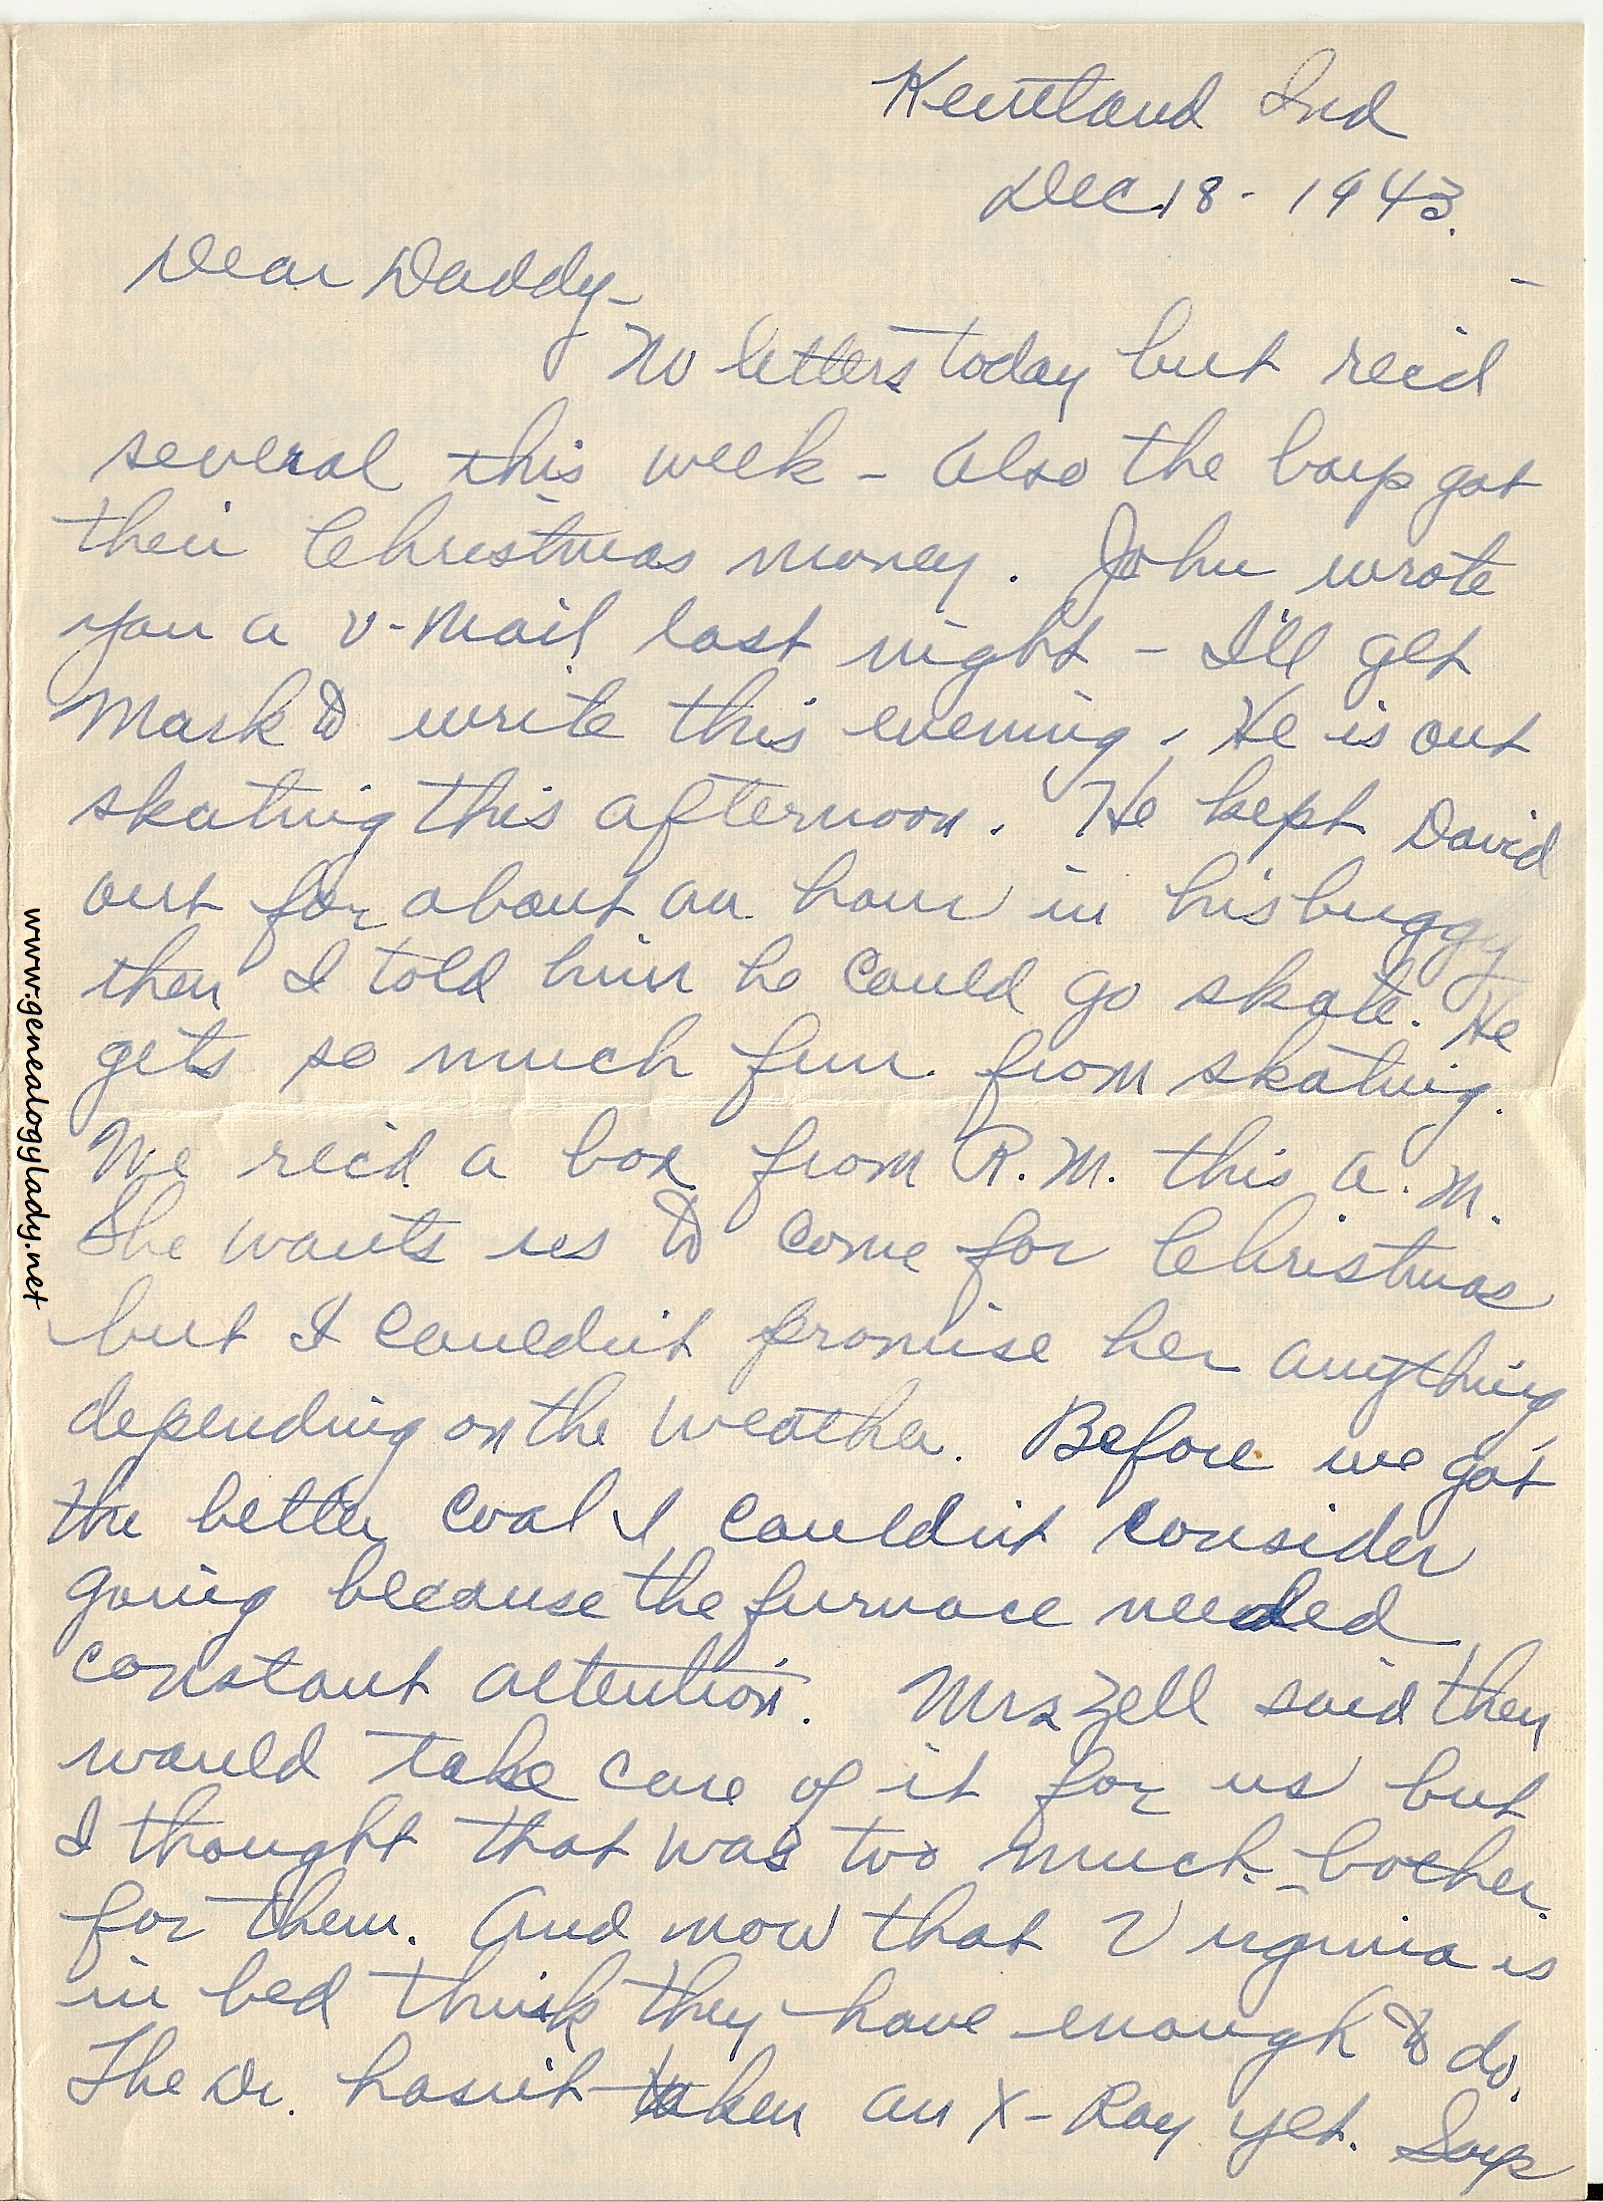 Kentland Ind
Dec 18 - 1943.
Dear Daddy -
No letters today but rec'd
several this week - also the boys got
their Christmas money. John wrote
you a V-Mail last night - I'll get
Mark to write this evening. He is out
skating this afternoon. He kept David
out for about an hour in his buggy
then I told him he could go skate. He
gets so much fun from skating.
We rec'd a box from R.M. this a.m.
She wants us to come for Christmas
but I couldn't promise her anything
depending on the weather. Before we got
the better coal I couldn't consider
going because the furnace needed
constant attention. Mrs Zell said they
would take care of it for us but
I thought that was too much - bother
for them. And now that Virginia is
in bed think they have enough to do.
The Dr. hasn't taken an X-Ray yet. Says
www.genealogylady.net